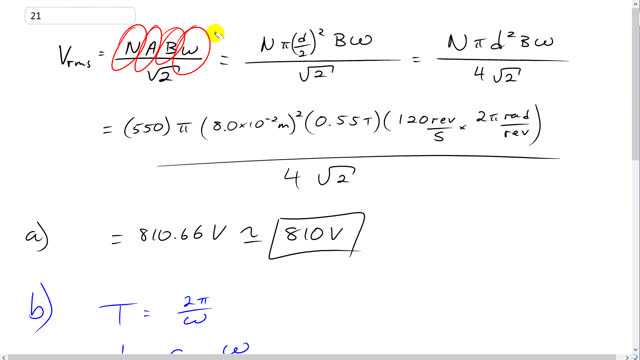 21
V_rms = NABω / √2 = Nπ(d/2)² Bω / √2 = Nπd²Bω / 4√2
= (550)π(8.0×10⁻²m)²(0.55T)(120 rev/s × 2π rad/rev) / 4√2
a) = 810.66 V ≃ 810 V
b) T = 2π/ω